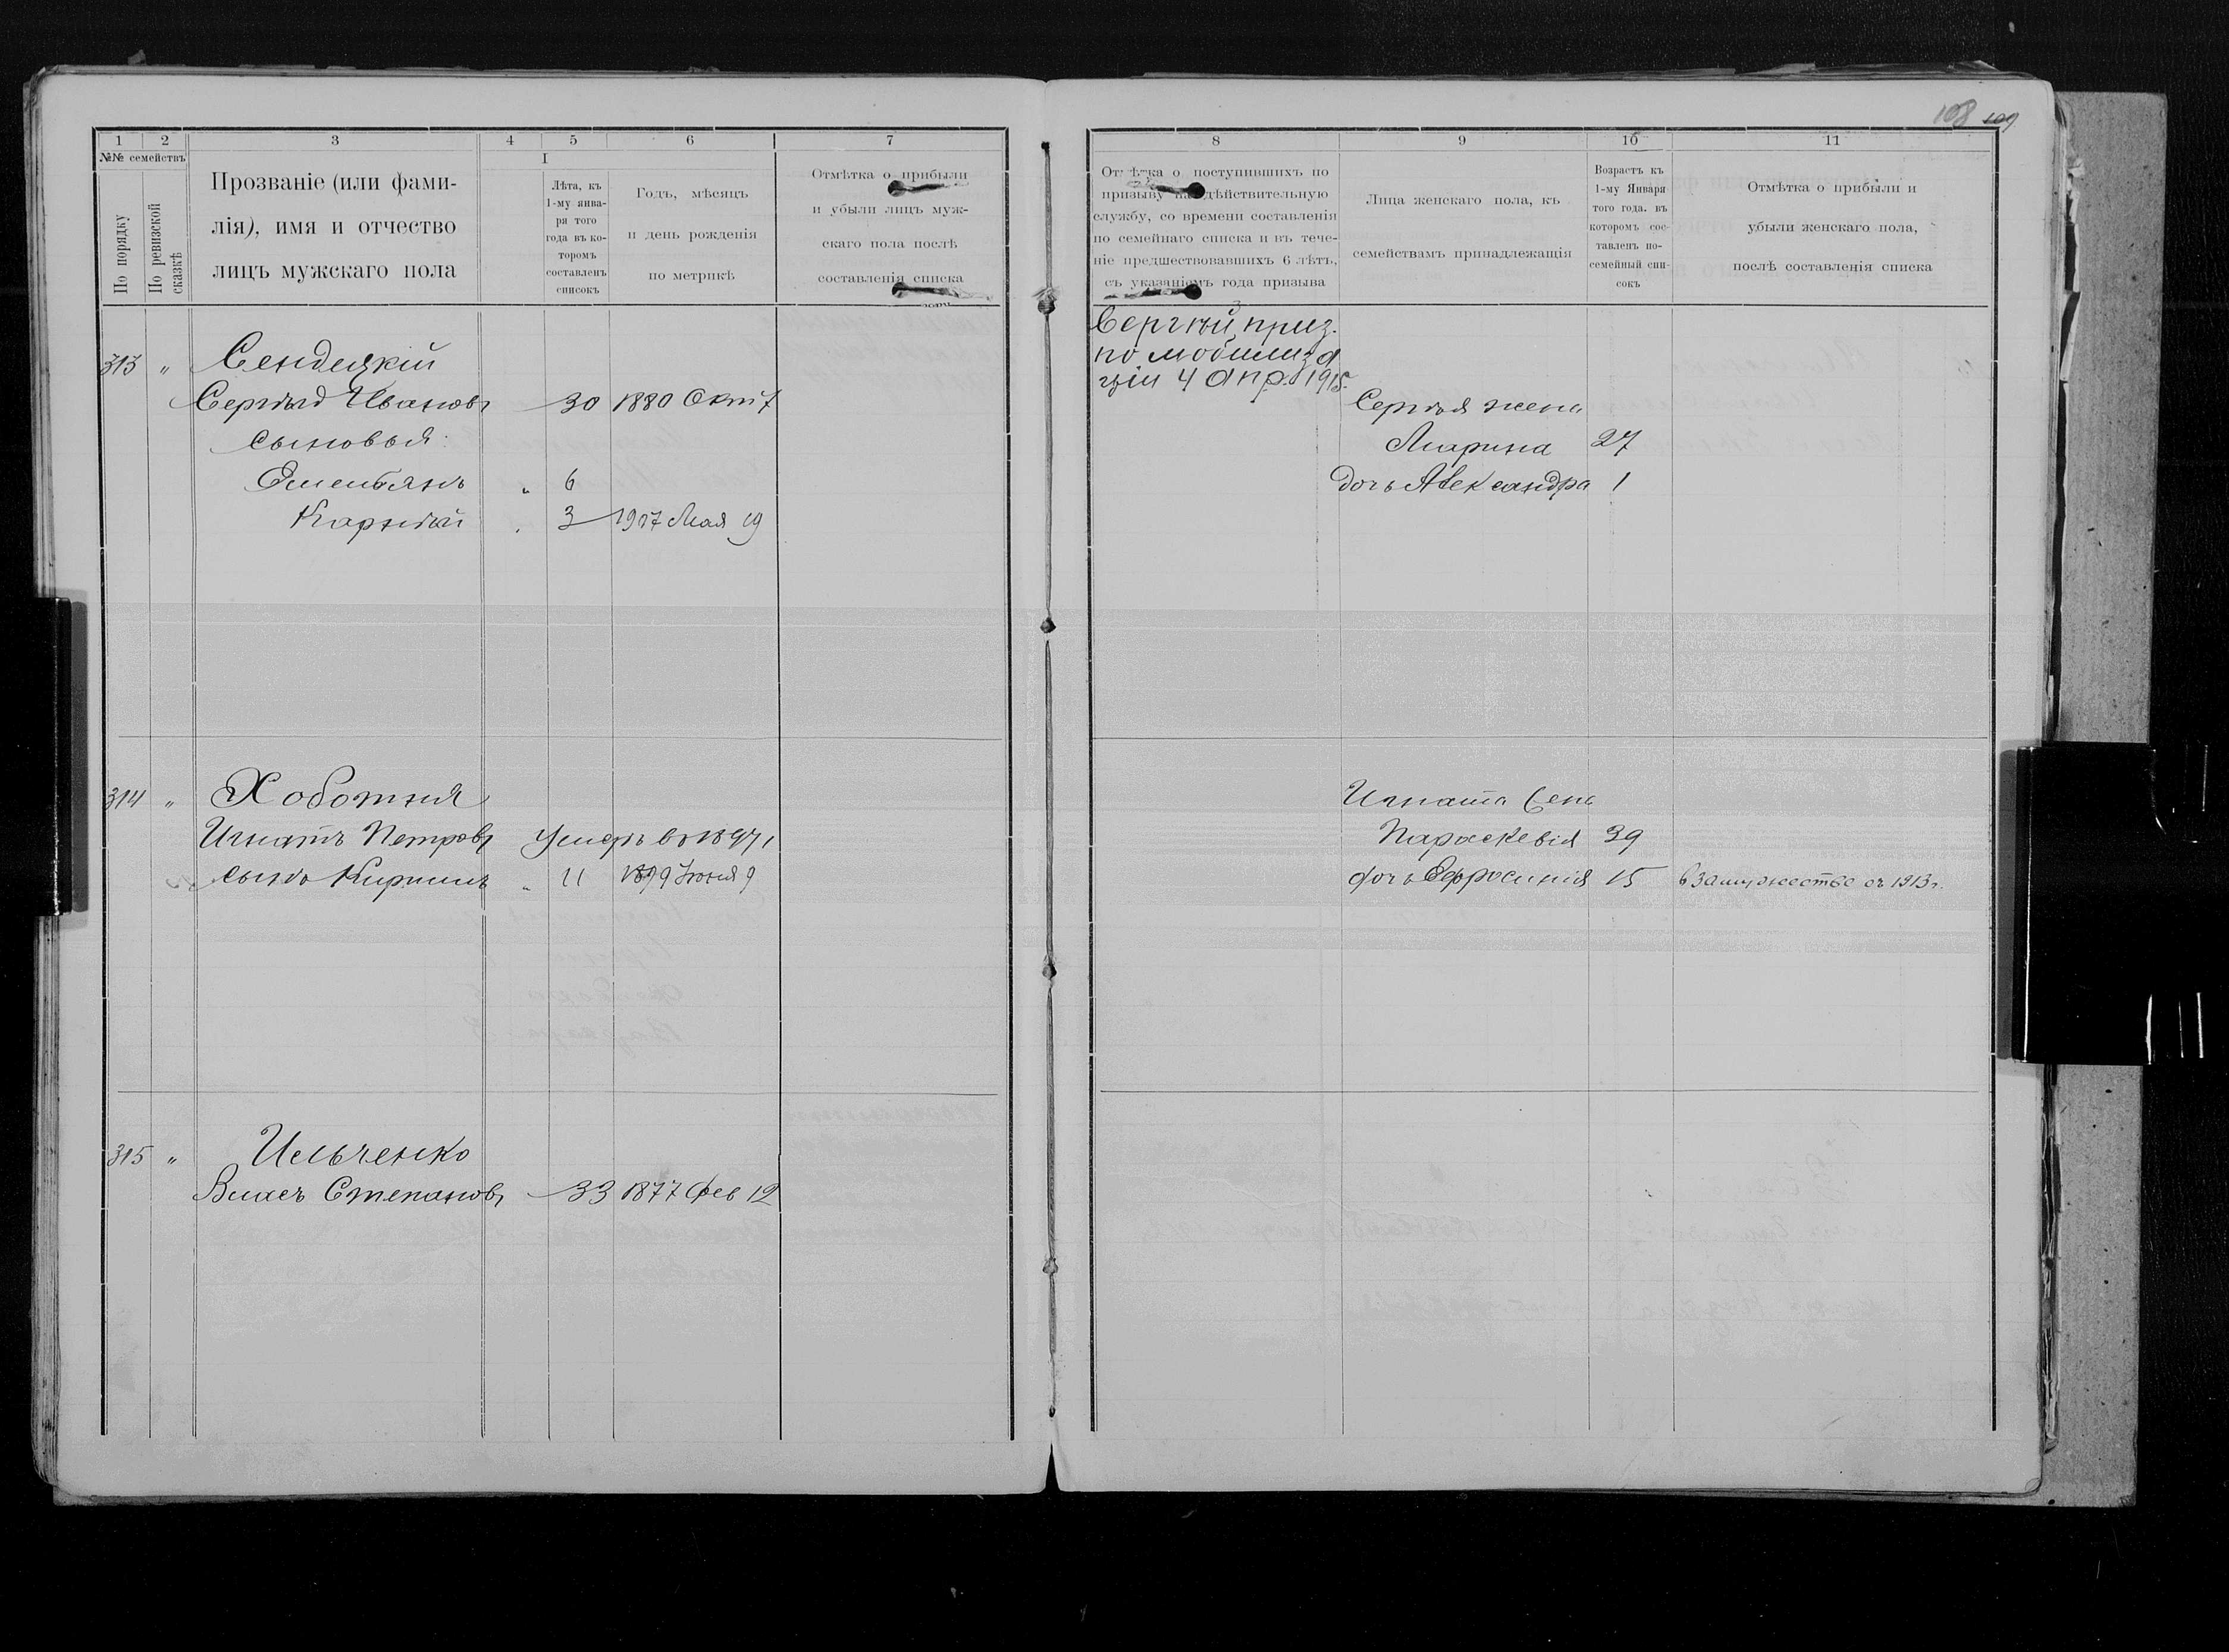 108 109
1 2 3 4 5 6 7
№№ семействъ
По порядку
По ревизской сказкѣ
Прозваніе (или фами-
лія), имя и отчество
лицъ мужскаго пола
I
Лѣта, къ
1-му янва-
ря того
года въ ко-
торомъ
составленъ
списокъ
Годъ, мѣсяцъ
и день рожденія
по метрикѣ
Отмѣтка о прибыли
и убыли лицъ муж-
скаго пола послѣ
составленія списка
313 " Сендецкій
Сергѣй Ивановъ 30 1880 Окт 7
сыновья:
Емельянъ " 6
Карнѣй " 3 1907 Мая 19
314 " Хоботня
Игнатъ Петровъ Умеръ въ 1897 г
сынъ Кириллъ " 11 1899 Іюня 9
315 " Ильченко
Власъ Степановъ 33 1877 Фев 12
8 9 10 11
Отмѣтка о поступившихъ по
призыву на дѣйствительную
службу, со времени составленія
по семейнаго списка и въ тече-
ніе предшествовавшихъ 6 лѣтъ,
съ указаніемъ года призыва
Лица женскаго пола, къ
семействамъ принадлежащія
Возрастъ къ
1-му Января
того года. въ
которомъ сос-
тавленъ по-
семейный спи-
сокъ
Отмѣтка о прибыли и
убыли женскаго пола,
послѣ составленія списка
Сергѣй приз.
по мобилиза
ціи 4 апр. 1915.
Сергѣя жена
Марина 27
дочь Александра 1
Игната жена
Параскевія 39
дочь Ефросинія 15 в замужестве съ 1913 г.